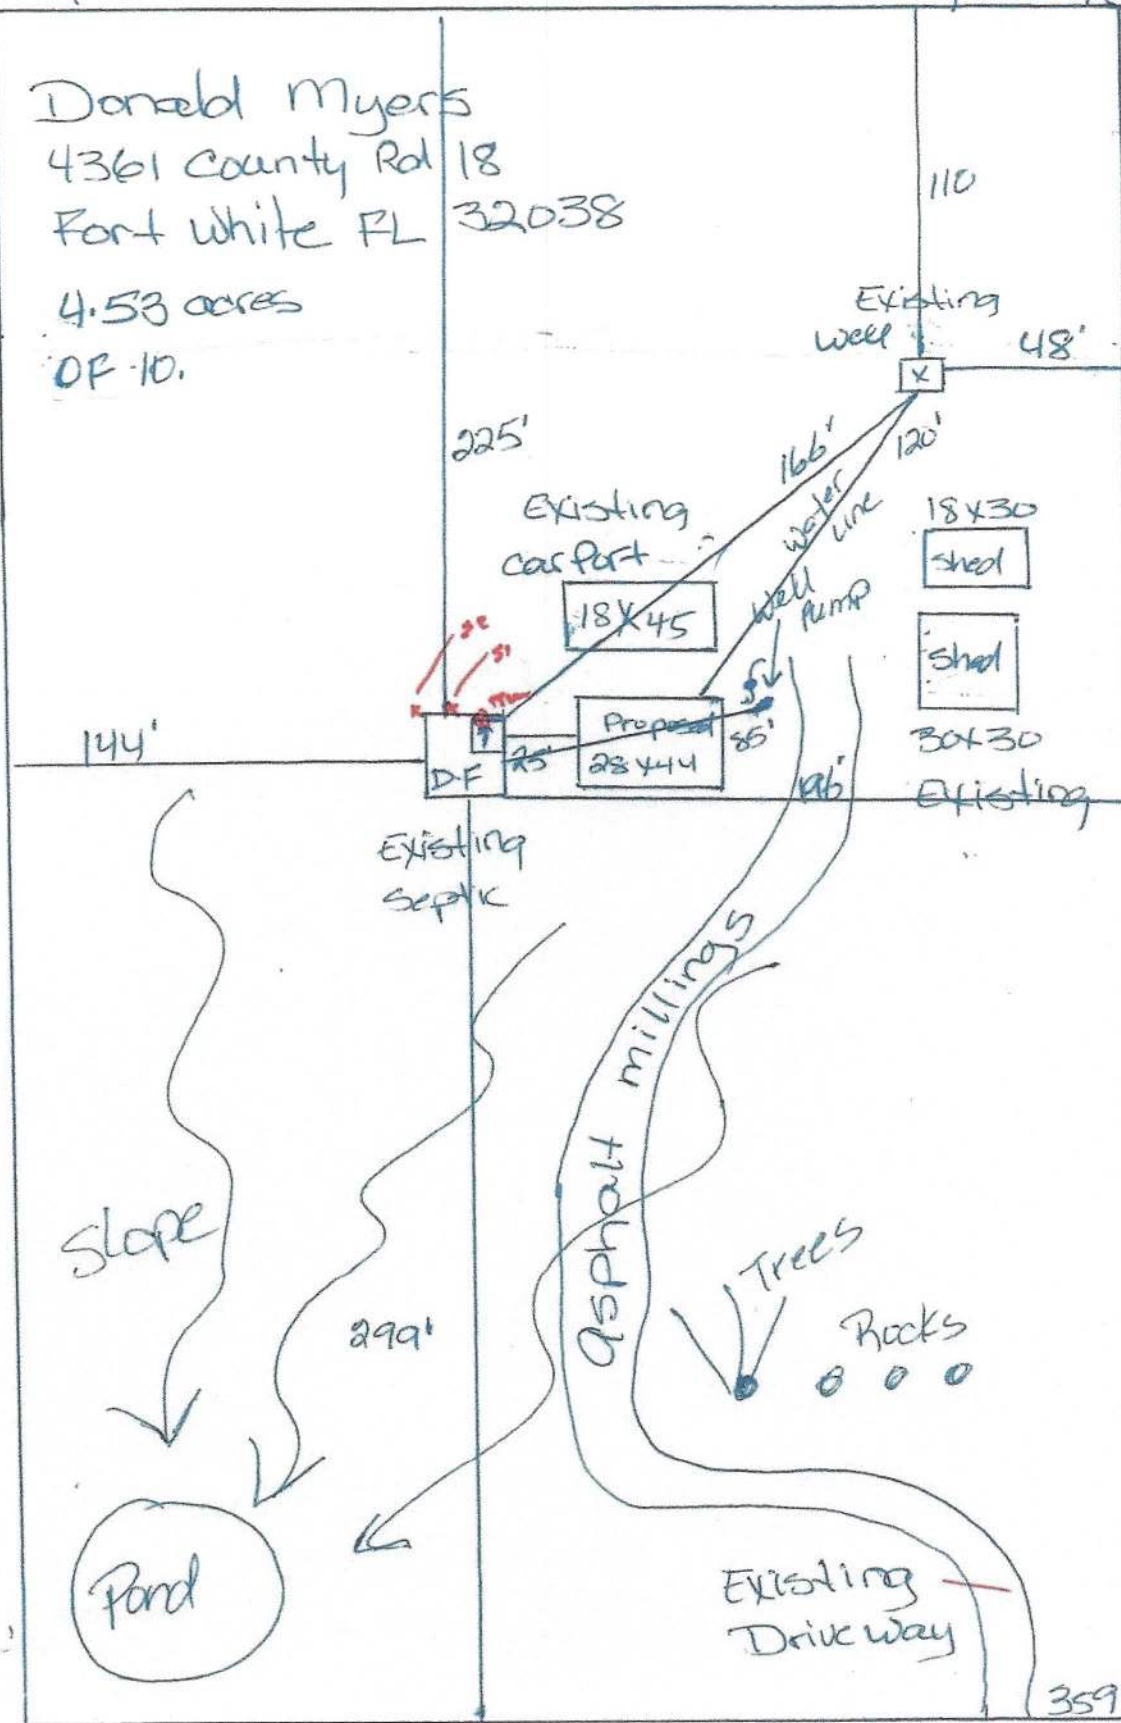 Donald Myers
4361 County Rd 18
Fort White FL 32038
4.53 acres
OF 10.
110
Existing
Well
48'
X
225'
166'
120'
Water
Line
Existing
CarPort
18X45
Well
Pump
18X30
Shed
Shed
30X30
Existing
144'
D-F
25'
Proposed
28X44
85'
196'
Existing
Septic
Asphalt millings
Slope
299'
Trees
Rocks
Pond
Existing
Driveway
359